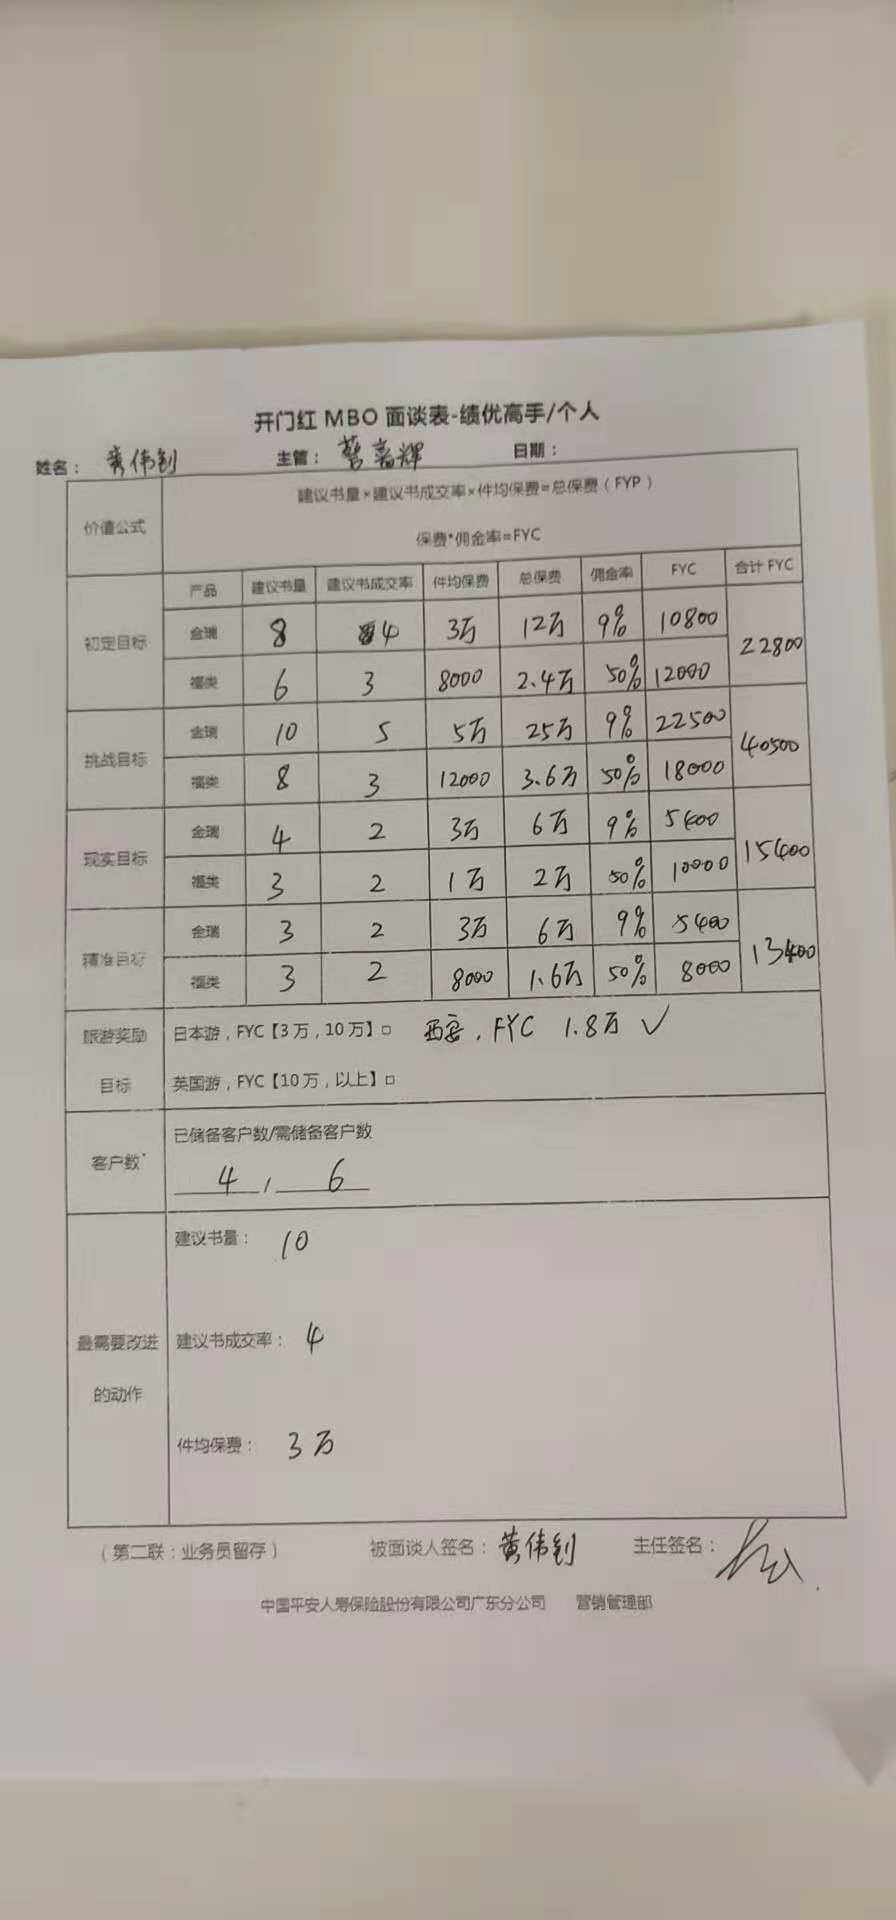 开门红 MBO 面谈表-绩优高手/个人
姓名： 黄伟钊 主管： 蔡嘉辉 日期：
价值公式
建议书量*建议书成交率*件均保费=总保费（FYP）
保费*佣金率=FYC
产品 建议书量 建议书成交率 件均保费 总保费 佣金率 FYC 合计 FYC
初定目标
金瑞 8 4 3万 12万 9% 10800 22800
福类 6 3 8000 2.4万 50% 12000
挑战目标
金瑞 10 5 5万 25万 9% 22500 40500
福类 8 3 12000 3.6万 50% 18000
现实目标
金瑞 4 2 3万 6万 9% 5400 15400
福类 3 2 1万 2万 50% 10000
精准目标
金瑞 3 2 3万 6万 9% 5400 13400
福类 3 2 8000 1.6万 50% 8000
旅游奖励
目标
日本游，FYC【3万，10万】□ 西安，FYC 1.8万 ✓
英国游，FYC【10万，以上】□
客户数*
已储备客户数/需储备客户数
4 / 6
最需要改进
的动作
建议书量： 10
建议书成交率： 4
件均保费： 3万
（第二联：业务员留存） 被面谈人签名：黄伟钊 主任签名：
中国平安人寿保险股份有限公司广东分公司 营销管理部